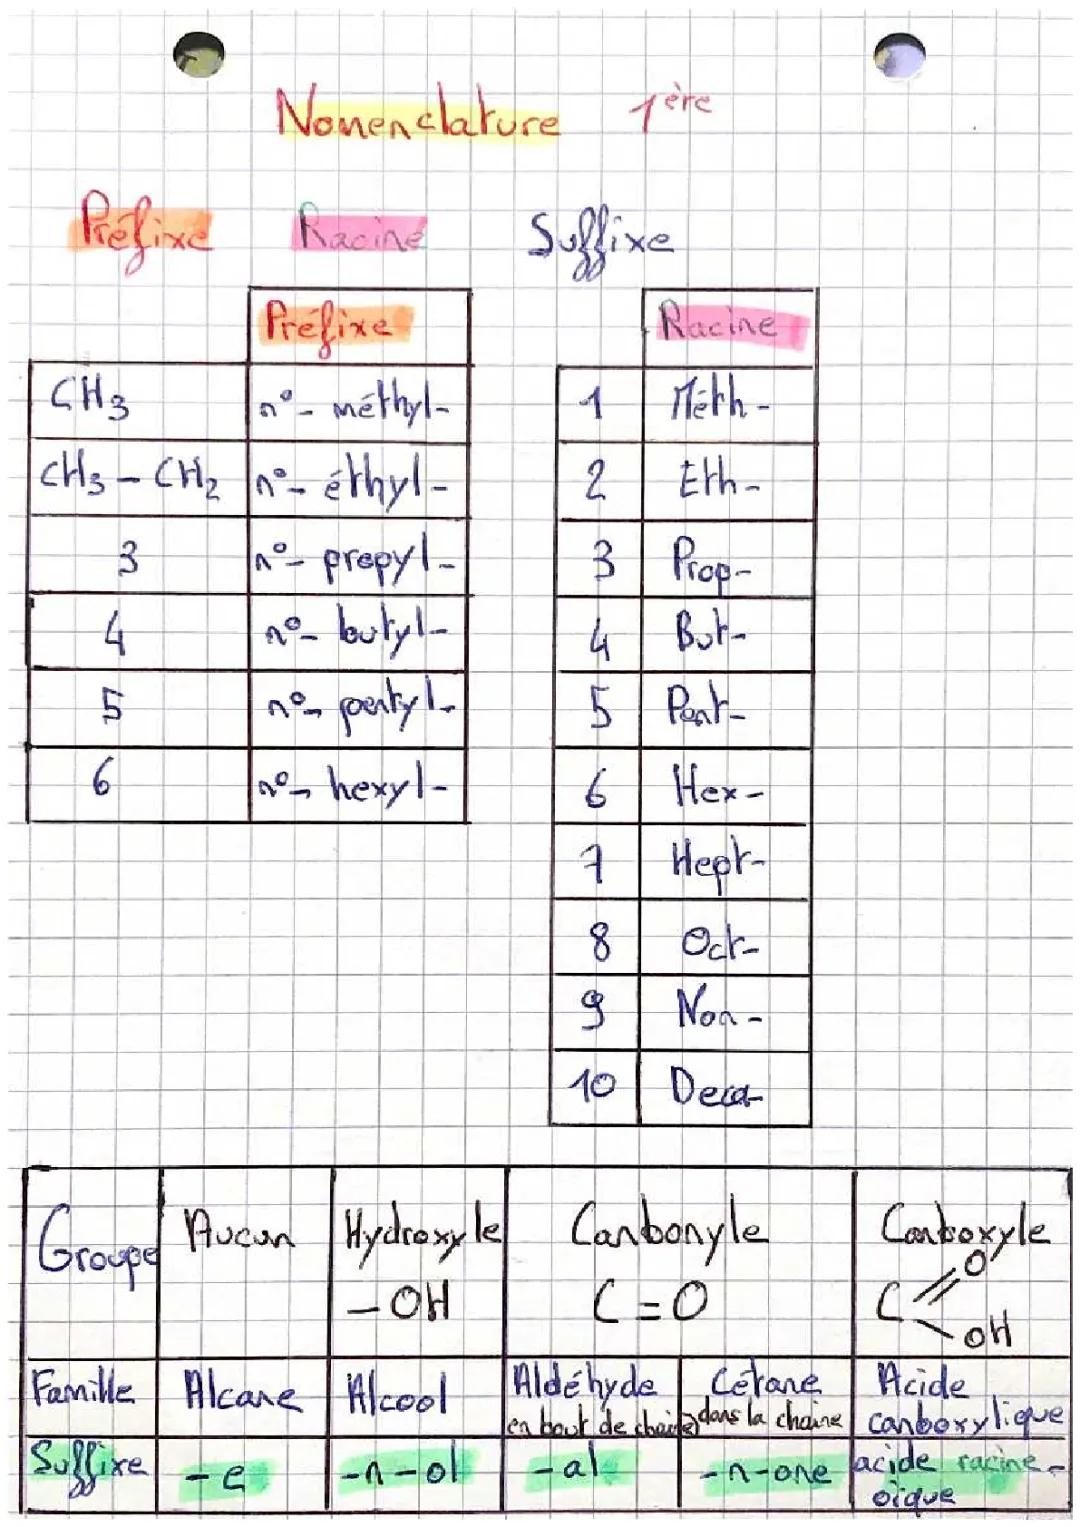 Nomenclature 1ère
Préfixe Racine Suffixe
Préfixe
CH3 n°- méthyl-
CH3 - CH2 n°- éthyl-
3 n°- propyl-
4 n°- butyl-
5 n°- pentyl-
6 n°- hexyl-
Racine
1 Méth-
2 Eth-
3 Prop-
4 But-
5 Pent-
6 Hex-
7 Hept-
8 Oct-
9 Non-
10 Deca-
Groupe Aucun Hydroxyle Carbonyle Carboxyle
-OH C=O C O OH
Famille Alcane Alcool Aldéhyde en bout de chaine Cétane dans la chaine Acide carboxylique
Suffixe -e -n-ol -al -n-one acide racine-oïque